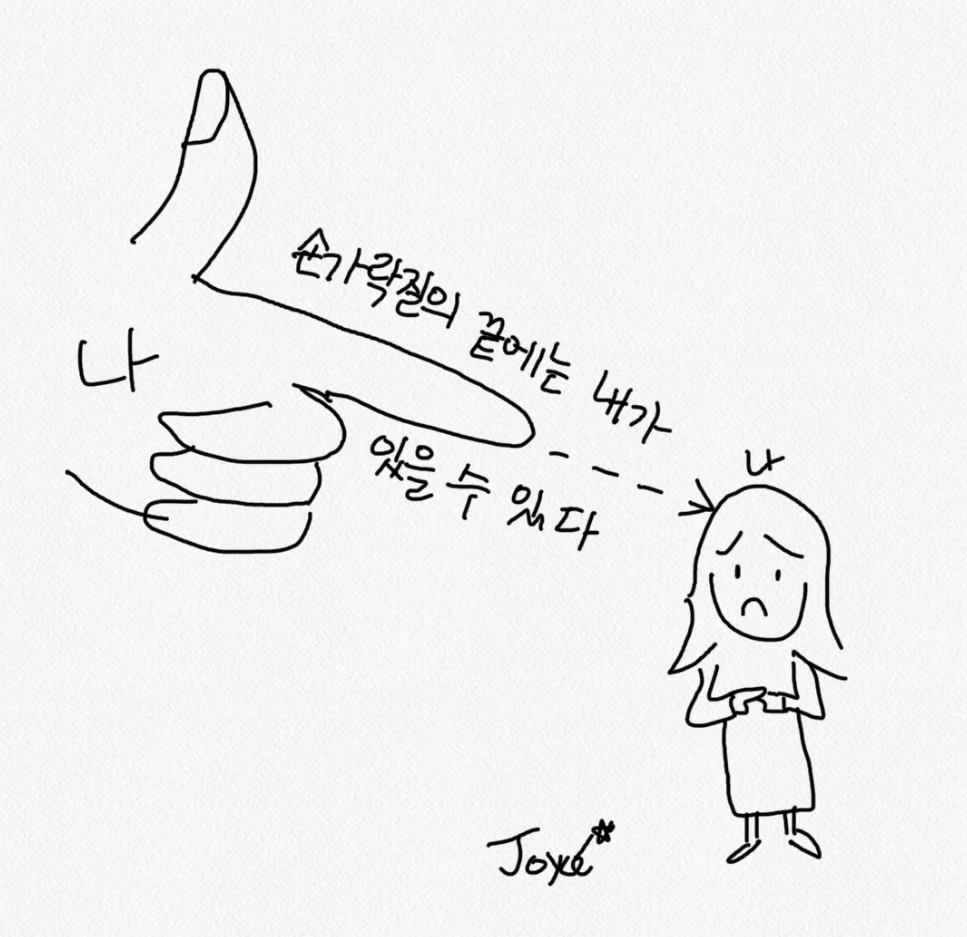 손가락질의 끝에는 내가
나
있을 수 있다
나
Joyce